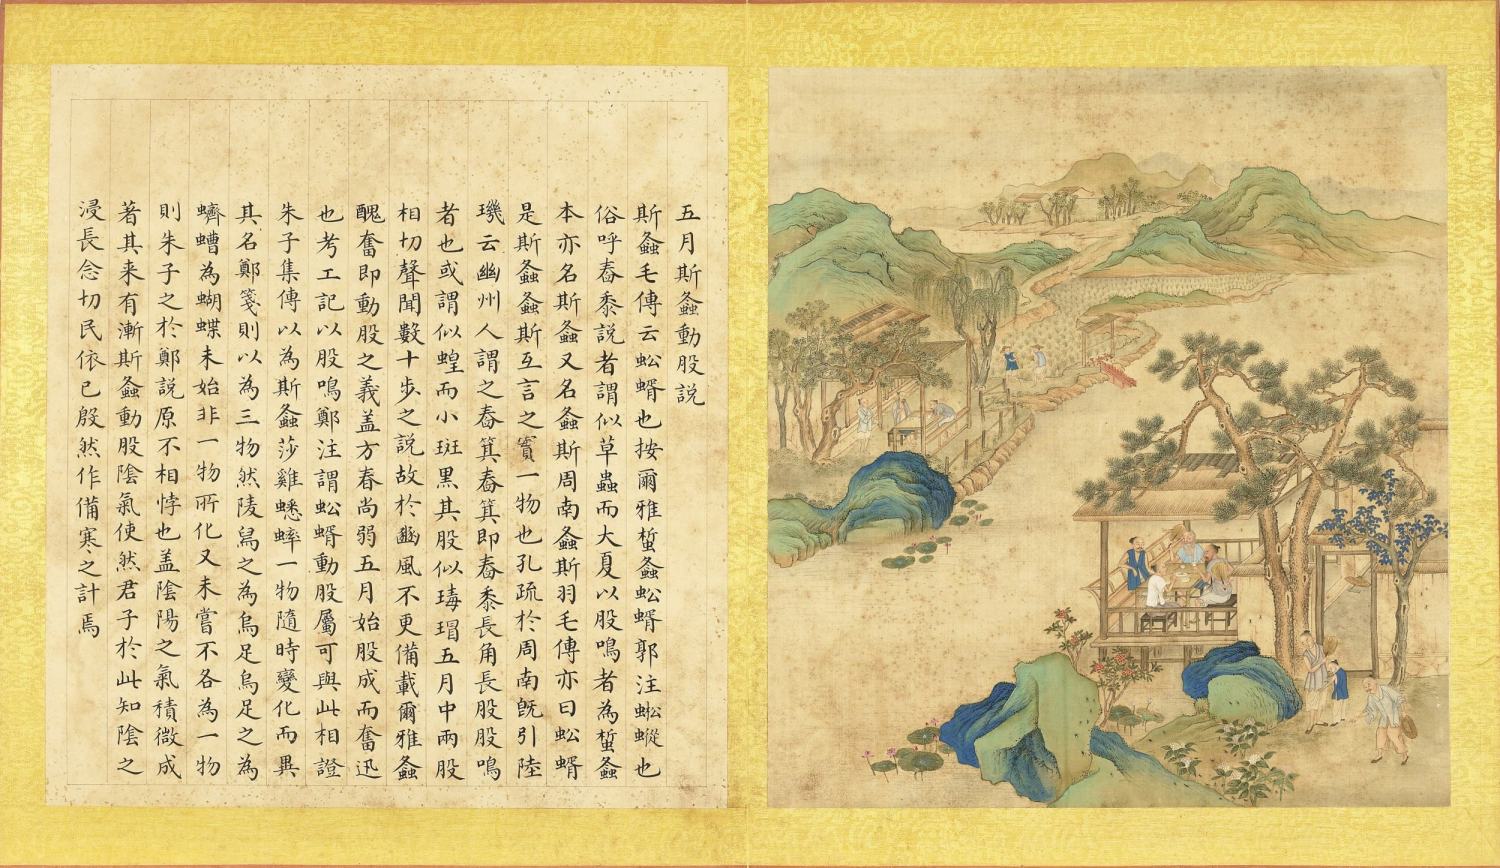 五月斯螽動股説
斯螽毛傳云蚣蝑也按爾雅蜤螽蚣蝑郭注蜙蝑也
俗呼舂黍説者謂似草蟲而大夏以股鳴者為蜤螽
本亦名斯螽又名螽斯周南螽斯羽毛傳亦曰蚣蝑
是斯螽螽斯互言之實一物也孔疏於周南旣引陸
璣云幽州人謂之舂箕舂箕即舂黍長角長股股鳴
者也或謂似蝗而小斑黑其股似瑇瑁五月中兩股
相切聲聞數十步之説故於豳風不更備載爾雅螽
醜奮即動股之義蓋方春尚弱五月始股成而奮迅
也考工記以股鳴鄭注謂蚣蝑動股屬可與此相證
朱子集傳以為斯螽莎雞蟋蟀一物隨時變化而異
其名鄭箋則以為三物然陵舄之為烏足烏足之為
蠐螬為蝴蝶未始非一物所化又未嘗不各為一物
則朱子之於鄭説原不相悖也蓋陰陽之氣積微成
著其来有漸斯螽動股陰氣使然君子於此知陰之
浸長念切民依已殷然作備寒之計焉